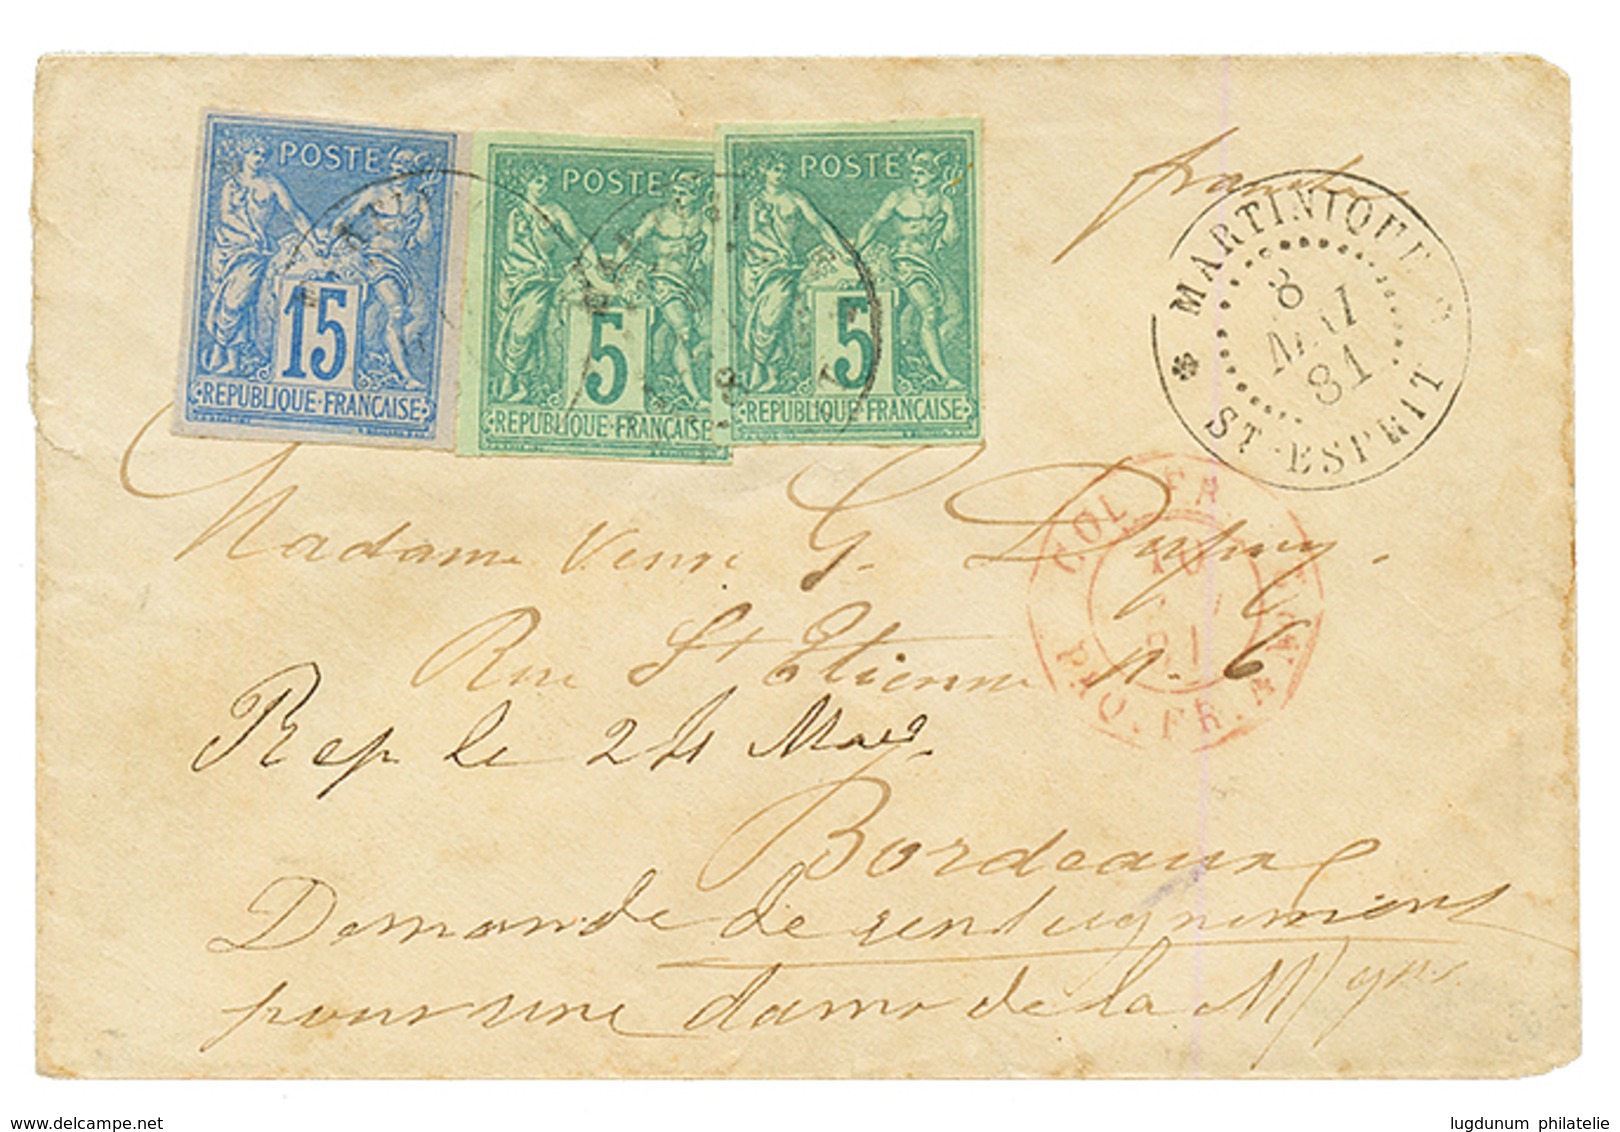 POSTE
15
REPUBLIQUE·FRANÇAISE
POSTE
5
REPUBLIQUE·FRANÇAISE
POSTE
5
REPUBLIQUE·FRANÇAISE
MARTINIQUE
8
MAI
81
ST-ESPRIT
COL. FR
10
PAQ. FR. B Nº
Madame Veuve G. Dupuy.
Rue St Etienne n. 6
Rep le 24 Mai
Bordeaux
Demande de renseignements
pour une dame de la
lugdunum philatelie